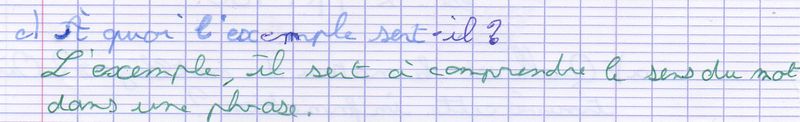 c) À quoi l'exemple sert-il ?
L'exemple, il sert à comprendre le sens du mot
dans une phrase.